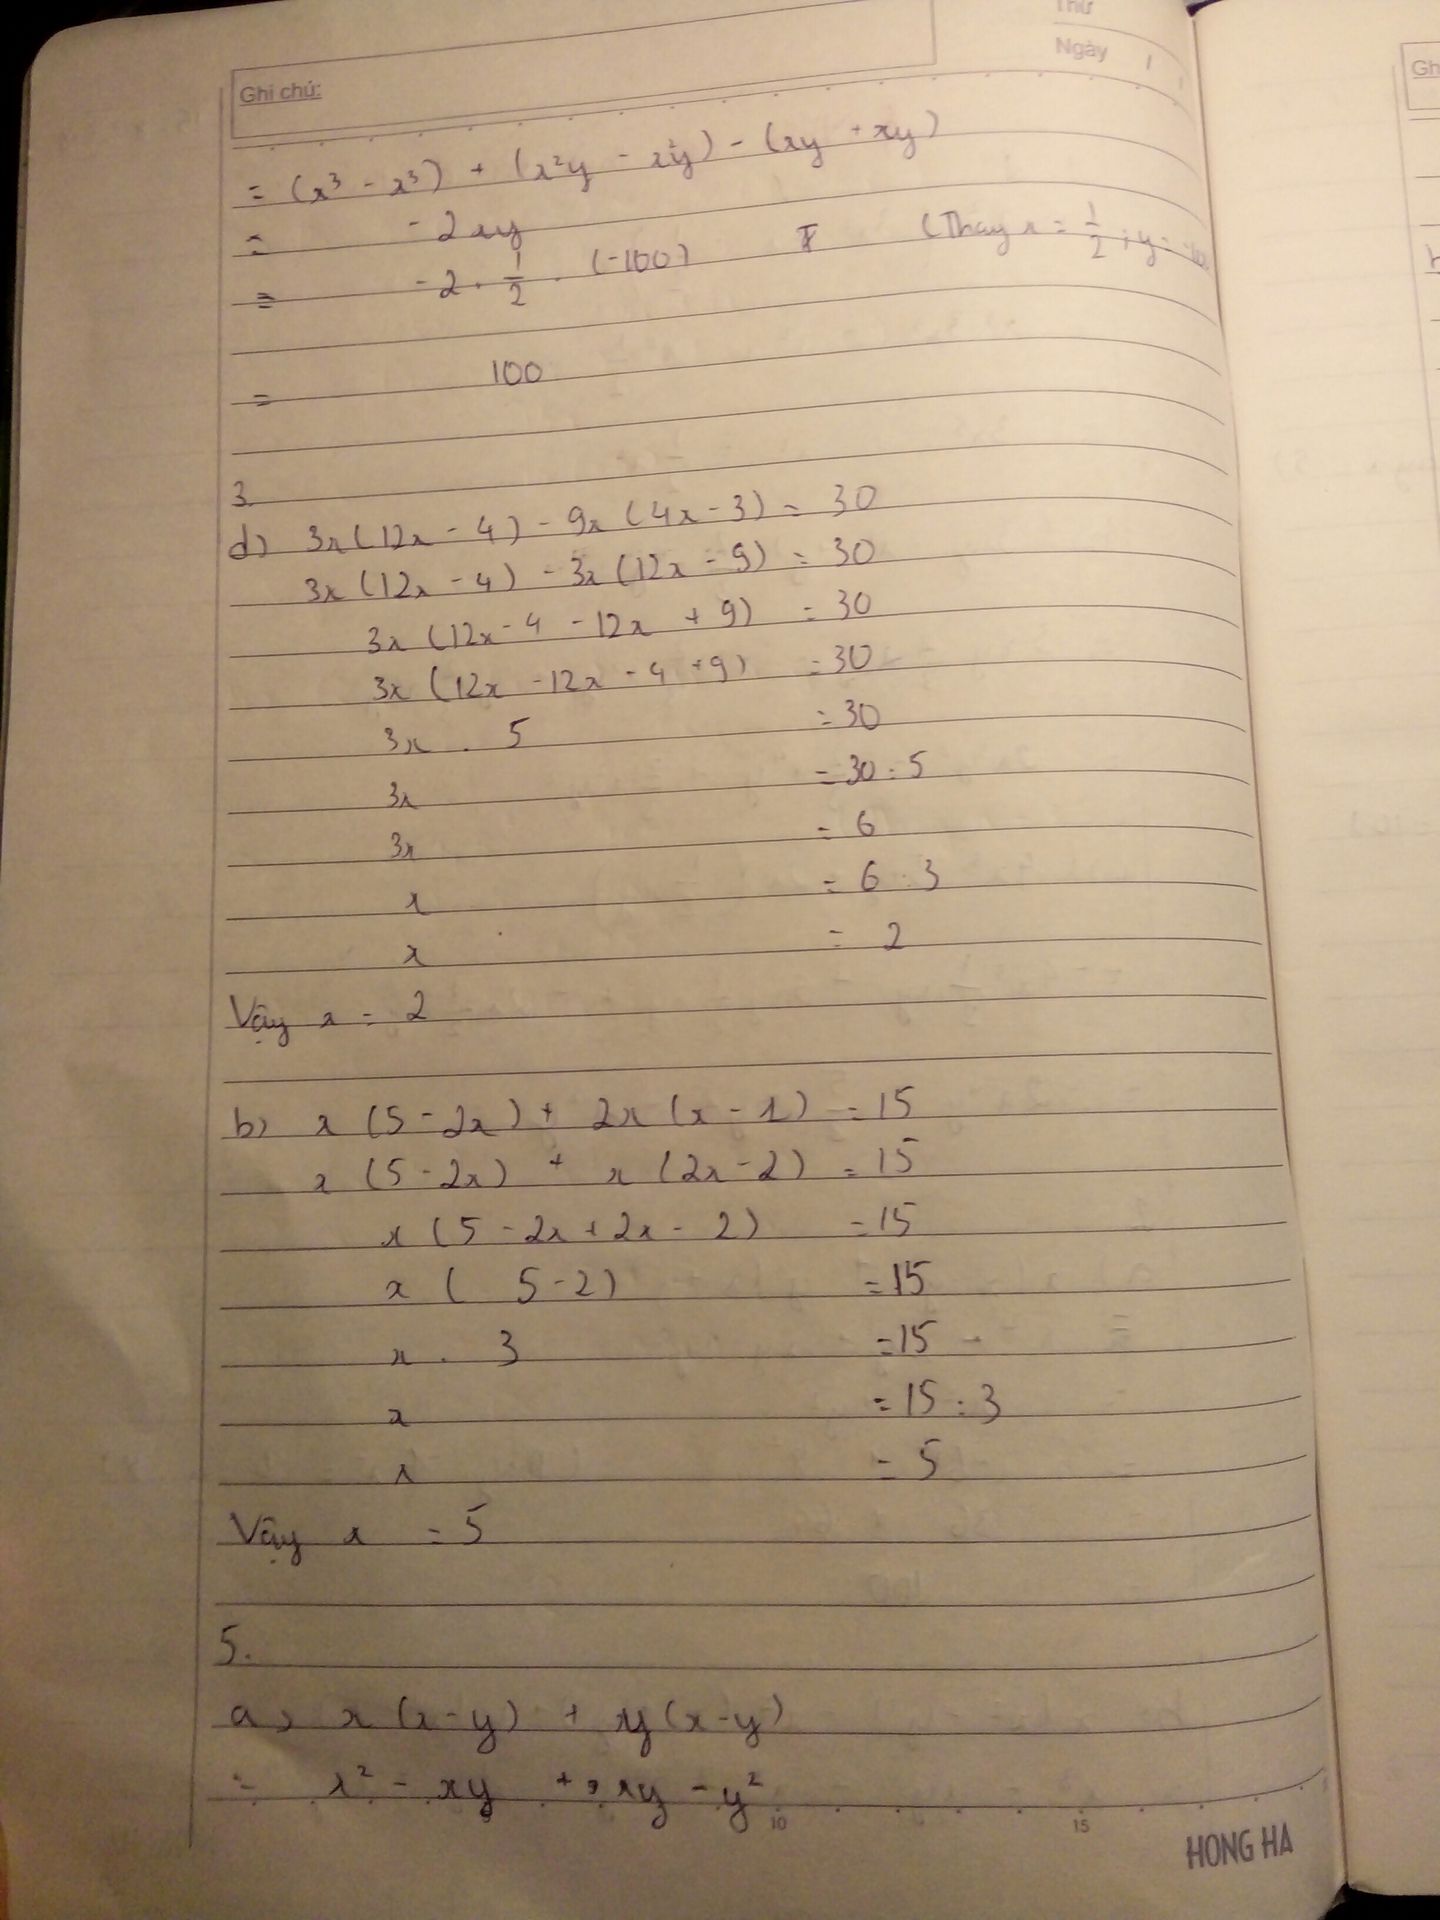 Thứ
Ngày
Ghi chú:
= (x³ - x³) + (x²y - x²y) - (xy + xy)
= - 2xy
= - 2 . 1/2 . (-100) (Thay x = 1/2 ; y = -100
= 100
3.
d) 3x(12x - 4) - 9x(4x - 3) = 30
3x(12x - 4) - 3x(12x - 9) = 30
3x (12x - 4 - 12x + 9) = 30
3x (12x - 12x - 4 + 9) = 30
3x . 5 = 30
3x = 30 : 5
3x = 6
x = 6 : 3
x = 2
Vậy x = 2
b) x (5 - 2x) + 2x (x - 1) = 15
x (5 - 2x) + x (2x - 2) = 15
x (5 - 2x + 2x - 2) = 15
x ( 5 - 2) = 15
x . 3 = 15
x = 15 : 3
x = 5
Vậy x = 5
5.
a) x (x - y) + y (x - y)
= x² - xy + xy - y²
10 15
HONG HA
Gh